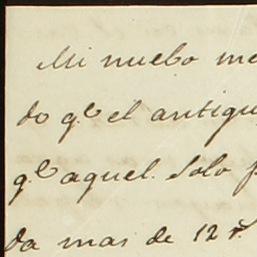 Mi nuebo me
do q.e el antigu
q.e aquel. Solo p
da mas de 12 r.